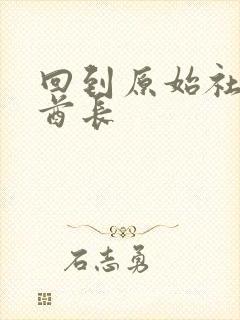 回到原始社
酋长
石志勇